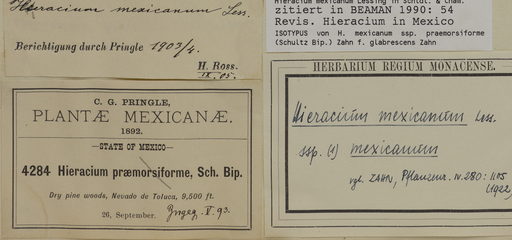 Hieracium mexicanum Less.
Berichtigung durch Pringle 1903/4.
H. Ross.
IX. 05.
C. G. PRINGLE,
PLANTÆ MEXICANÆ.
1892.
STATE OF MEXICO
4284 Hieracium præmorsiforme, Sch. Bip.
Dry pine woods, Nevado de Toluca, 9,500 ft.
26, September. V. 93.
Hieracium mexicanum Lessing in Schltd. & Cham.
zitiert in BEAMAN 1990: 54
Revis. Hieracium in Mexico
ISOTYPUS von H. mexicanum ssp. praemorsiforme
(Schultz Bip.) Zahn f. glabrescens Zahn
HERBARIUM REGIUM MONACENSE.
Hieracium mexicanum Less.
ssp. (1) mexicanum
vgl. ZAHN, Pflanzenr. IV.280: 1105
(1922)